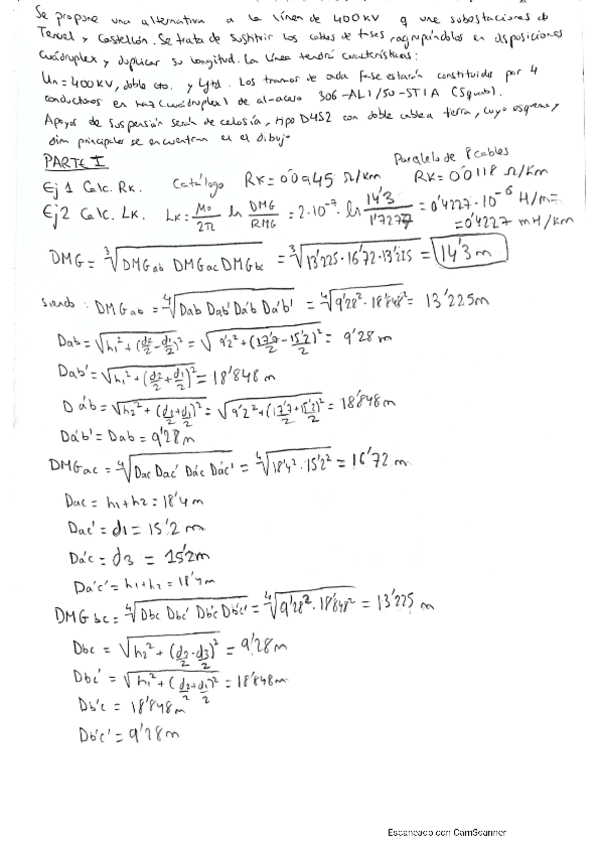 Se propone una alternativa a la línea de 400KV q une subestaciones de
Teruel y Castellón. Se trata de sustituir los cables de fases reagrupándolos en disposiciones
Cuádruplex y duplicar su longitud. La línea tendrá características:
Un = 400KV, doble cto. y Lftd. Los tramos de cada fase estarán constituidos por 4
conductores en haz (cuádruplex) de al-acero 306-AL1/50-ST1A (Squab).
Apoyos de suspensión serán de celosía, tipo D4S2 con doble cable a tierra, cuyo esquema y
dim principales se encuentran en el dibujo
PARTE I
Ej 1 Calc. Rk. Catálogo Rk = 0'0945 Ω/km Paralelo de 8 cables Rk = 0'0118 Ω/km
Ej 2 Calc. Lk. Lk = μ0/2π ln DMG/RMG = 2·10^-7 · ln 14'3/1'7277 = 0'4227·10^-6 H/m =
= 0'4227 mH/km
DMG = ∛(DMGab DMGac DMGbc) = ∛(13'225·16'72·13'225) = 14'3 m
siendo: DMGab = ∜(Dab Dab' Da'b Da'b') = ∜(9'28² · 18'848²) = 13'225m
Dab = √(h1² + (d2/2 - d1/2)²) = √(9'2² + (17'7/2 - 15'2/2)²) = 9'28m
Dab' = √(h1² + (d2/2 + d1/2)²) = 18'848 m
Da'b = √(h2² + (d2/2 + d1/2)²) = √(9'2² + (17'7/2 + 15'2/2)²) = 18'848m
Da'b' = Dab = 9'28m
DMGac = ∜(Dac Dac' Da'c Da'c') = ∜(18'4² · 15'2²) = 16'72 m
Dac = h1+h2 = 18'4 m
Dac' = d1 = 15'2 m
Da'c = d3 = 15'2m
Da'c' = h1+h2 = 18'4m
DMGbc = ∜(Dbc Dbc' Db'c Db'c') = ∜(9'28² · 18'848²) = 13'225 m
Dbc = √(h2² + (d2/2 - d3/2)²) = 9'28m
Dbc' = √(h1² + (d2/2 + d1/2)²) = 18'848m
Db'c = 18'848m
Db'c' = 9'28m
Escaneado con CamScanner